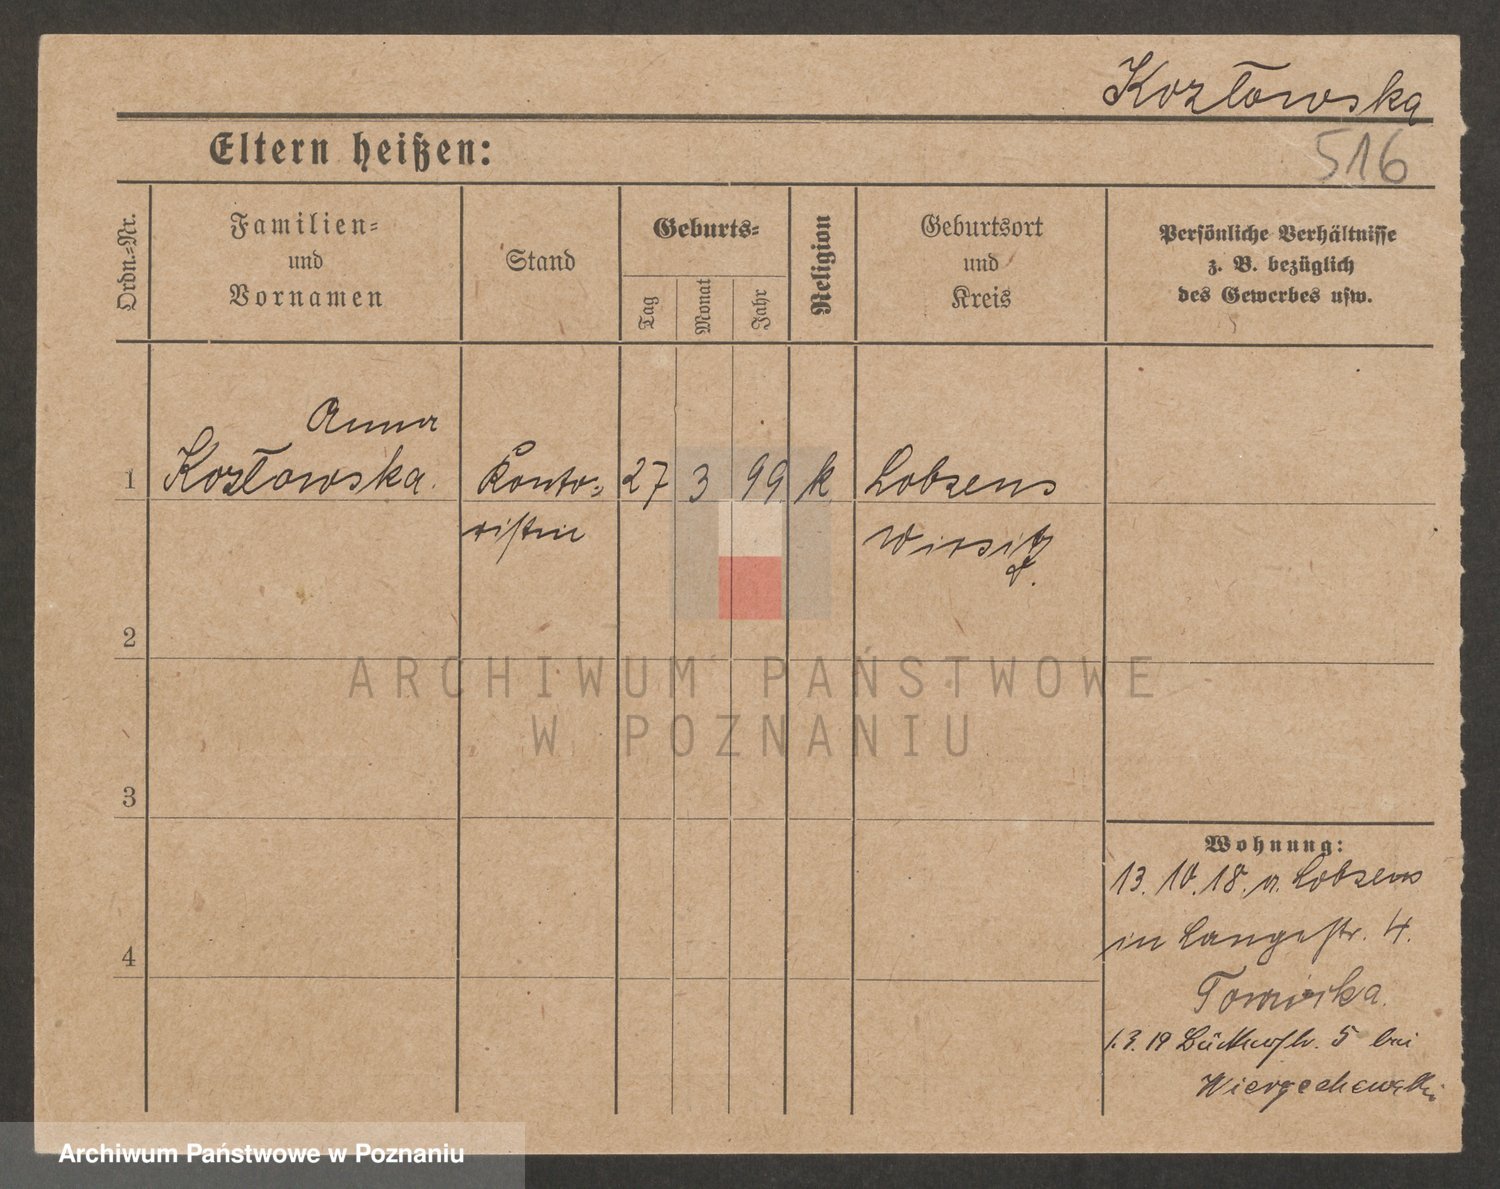 Kozłowska
Eltern heißen:
516
Ordn.=Nr.
Familien=
und
Vornamen
Stand
Geburts=
Tag
Monat
Jahr
Religion
Geburtsort
und
Kreis
Persönliche Verhältnisse
z. B. bezüglich
des Gewerbes usw.
Anna
1 Kozłowska. Konto= 27 3 99 k. Lobsens
ristin Wirsitz
2
3
4
Wohnung:
13. 10. 18. v. Lobsens
in Langestr. 4.
1.3.19 5 bei
ARCHIWUM PAŃSTWOWE
W POZNANIU
Archiwum Państwowe w Poznaniu